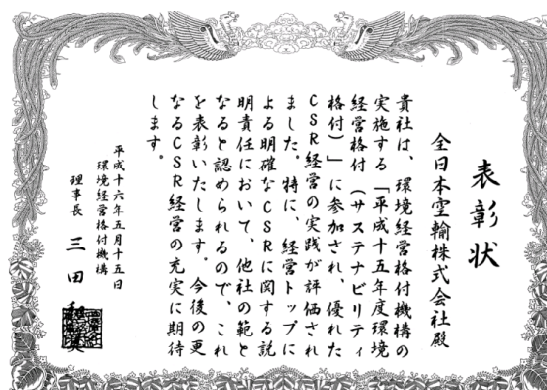 表彰状
全日本空輸株式会社殿
貴社は、環境経営格付機構の
実施する「平成十五年度環境
経営格付(サステナビリティ
格付)」に参加され、優れた
CSR経営の実践が評価され
ました。特に、経営トップに
よる明確なCSRに関する説
明責任において、他社の範と
なると認められるので、これ
を表彰いたします。今後の更
なるCSR経営の充実に期待
します。
平成十六年五月十五日
環境経営格付機構
理事長 三田